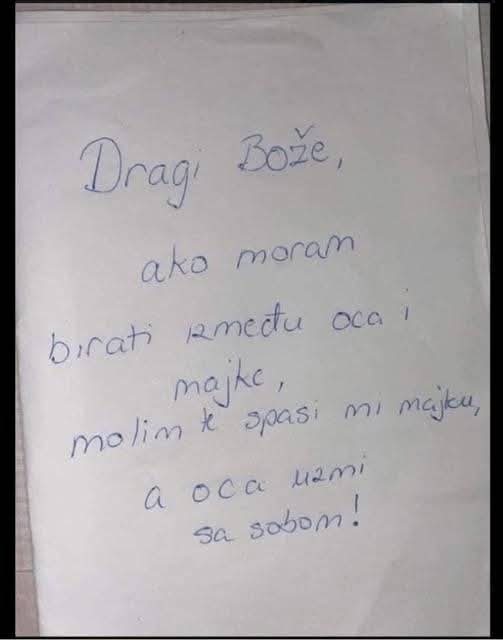 Dragi Bože,
ako moram
birati između oca i
majke,
molim te spasi mi majku,
a oca uzmi
sa sobom!